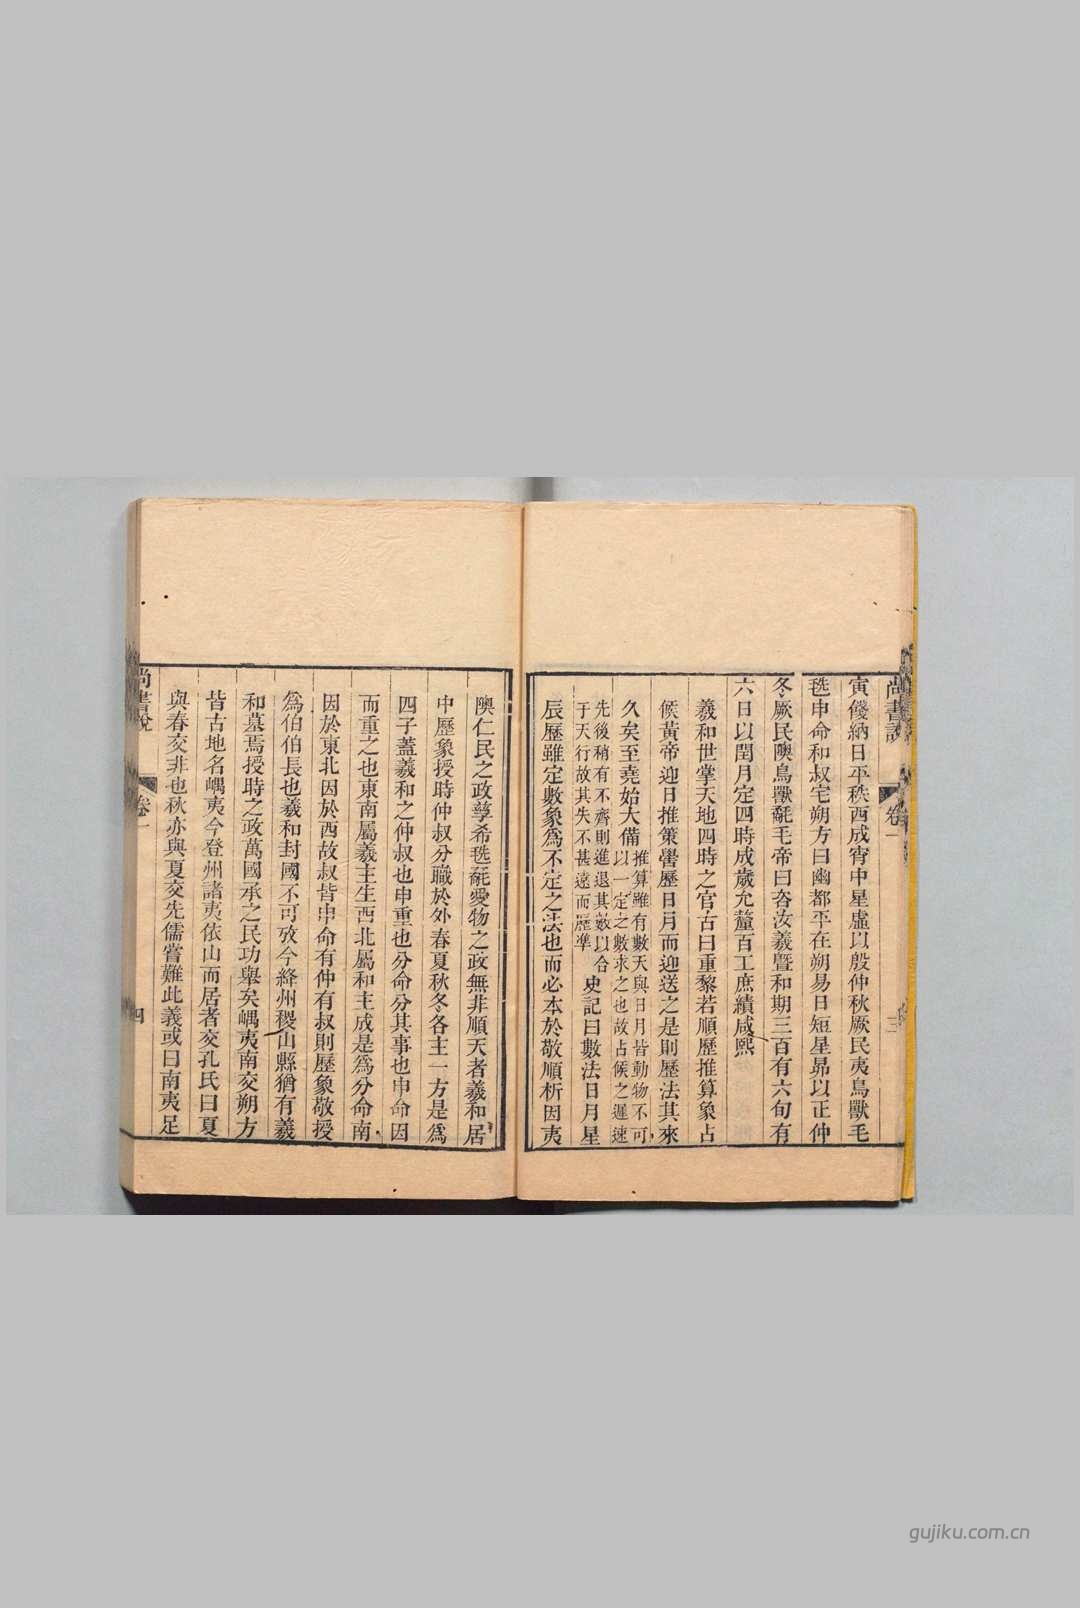 尚書說
卷一
三
寅餞納日平秩西成宵中星虛以殷仲秋厥民夷鳥獸毛
毨申命和叔宅朔方曰幽都平在朔易日短星昴以正仲
冬厥民隩鳥獸氄毛帝曰咨汝羲暨和期三百有六旬有
六日以閏月定四時成歲允釐百工庶績咸熙
羲和世掌天地四時之官古曰重黎若順歷推算象占
候黃帝迎日推策嚳歷日月而迎送之是則歷法其來
久矣至堯始大備
推算雖有數天與日月皆動物不可
以一定之數求之也故占候之遲速
先後稍有不齊則進退其數以合
于天行故其失不甚遠而歷準
史記曰數法日月星
辰歷雖定數象為不定之法也而必本於敬順析因夷
隩仁民之政孳希毨氄愛物之政無非順天者羲和居
中歷象授時仲叔分職於外春夏秋冬各主一方是為
四子蓋羲和之仲叔也申重也分命分其事也申命因
而重之也東南屬羲主生西北屬和主成是為分命南
因於東北因於西故叔皆申命有仲有叔則歷象敬授
為伯伯長也羲和封國不可攷今絳州稷山縣猶有羲
和墓焉授時之政萬國承之民功舉矣嵎夷南交朔方
皆古地名嵎夷今登州諸夷依山而居者交孔氏曰夏
與春交非也秋亦與夏交先儒嘗難此義或曰南夷足
尚書說
卷一
四
gujiku.com.cn